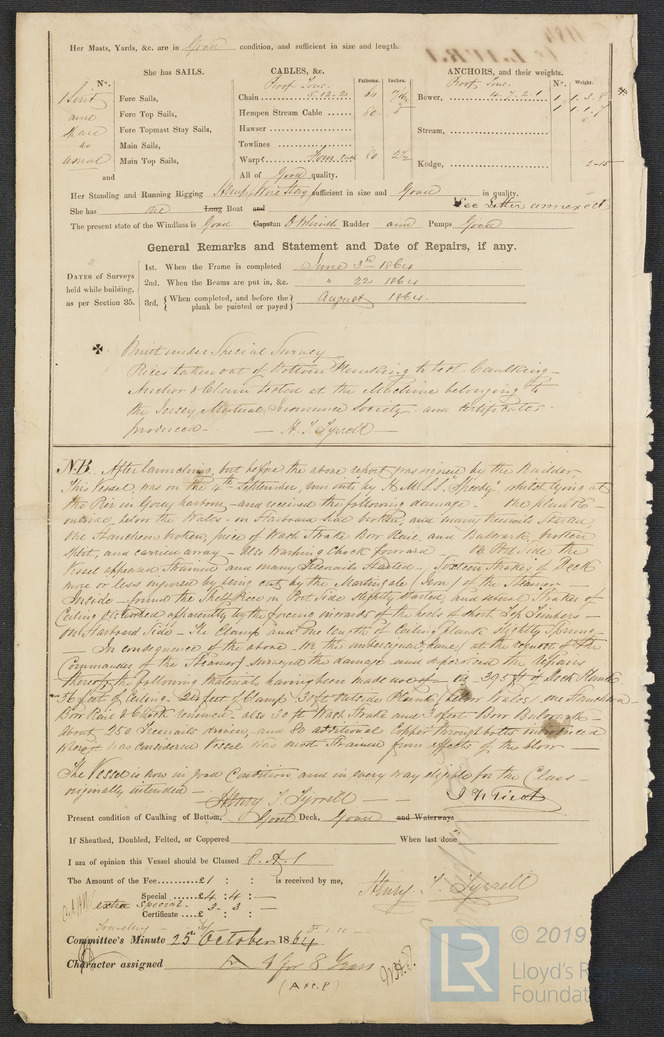 Her Masts, Yards, &c. are in Good condition, and sufficient in size and length.
She has SAILS.
CABLES, &c.
ANCHORS, and their weights.
N°.
Fathoms.
Inches.
N°.
Weight.
Proof Tons.
Proof Tons.
Fore Sails,
Chain
Bower,
and
Fore Top Sails,
Hempen Stream Cable
Fore Topmast Stay Sails,
Hawser
Stream,
Main Sails,
Towlines
usual
Main Top Sails,
Warp
Kedge,
and
All of Good quality.
Her Standing and Running Rigging Hemp, Wire Stay sufficient in size and Good in quality.
She has one Long Boat and See Letter annexed
The present state of the Windlass is Good Capstan Rudder and Pumps Good
General Remarks and Statement and Date of Repairs, if any.
DATES of Surveys held while building, as per Section 35.
1st. When the Frame is completed June 3rd 1864
2nd. When the Beams are put in, &c. " 22 1864
3rd. { When completed, and before the plank be painted or payed } August 1864.
Built under Special Survey
Pieces taken out of Bottom Planking to test Caulking
Anchor & Chain tested at the Machine belonging to
the Jersey Mutual Insurance Society and Certificates
produced - H. T. Tyrrell
NB. After launching, but before the above report was signed by the Builder
This Vessel was on the 4th September, run into by H.M.S.S. "Speedy" whilst lying at
the Pier in Gorey harbour, and received the following damage. - one plank
outside, below the Wales - on Starboard side broken, and many treenails started,
one Stancheon broken, piece of Wash Strake Bow Rail and Bulwark, broken
split, and carried away - Also Warping Chock forward - On Port Side the
Vessel appeared Strained and many Treenails Started - Sixteen Strakes of Deck
more or less injured by being cut by the Martingale (Iron) of the Steamer
Inside - found the Shelf Piece on Port Side slightly started, and several Strakes of
Ceiling started apparently by the forcing inwards of the heels of short Top Timbers -
On Starboard Side - The Clamp and one length of Ceiling plank slightly Sprung -
- In consequence of the above, We the undersigned, have, at the request of the
Commander of the Steamer, surveyed the damage and superintended the Repairs
thereof, the following materials having been made use of - viz. 395 ft of Deck Plank
56 feet of Ceiling - 20 feet of Clamp 30 ft outside Plank (below Wales) one Stancheon -
Bow Rail & Chock renewed - also 30 ft Wash Strake and 30 feet Bow Bulwark -
about 250 Treenails driven, and 80 additional Copper through bolts introduced
where it was considered Vessel was most Strained from effects of the blow -
The Vessel is now in good Condition and in every way eligible for the Class -
originally intended -
Henry T. Tyrrell
Present condition of Caulking of Bottom, Good Deck, Good and Waterways
If Sheathed, Doubled, Felted, or Coppered When last done
I am of opinion this Vessel should be Classed 8. A. 1
The Amount of the Fee £1 : : is received by me,
Special £4 : 4 : -
extra special 3 - 3 -
Certificate £ : :
Henry T. Tyrrell
Committee's Minute 25th October 1864
Character assigned A 1 for 8 Years
(A & C.P)
LR
© 2019
Lloyd's Register
Foundation